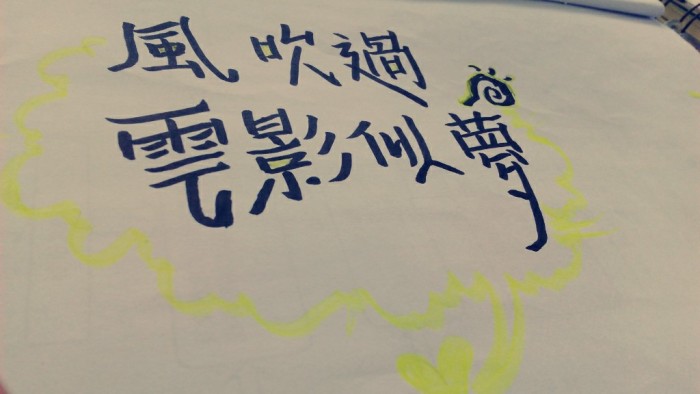 風吹過
雲影似夢